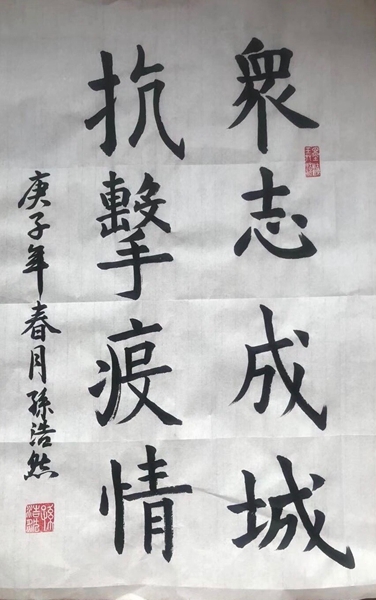 衆志成城
抗擊疫情
庚子年春月孫浩然